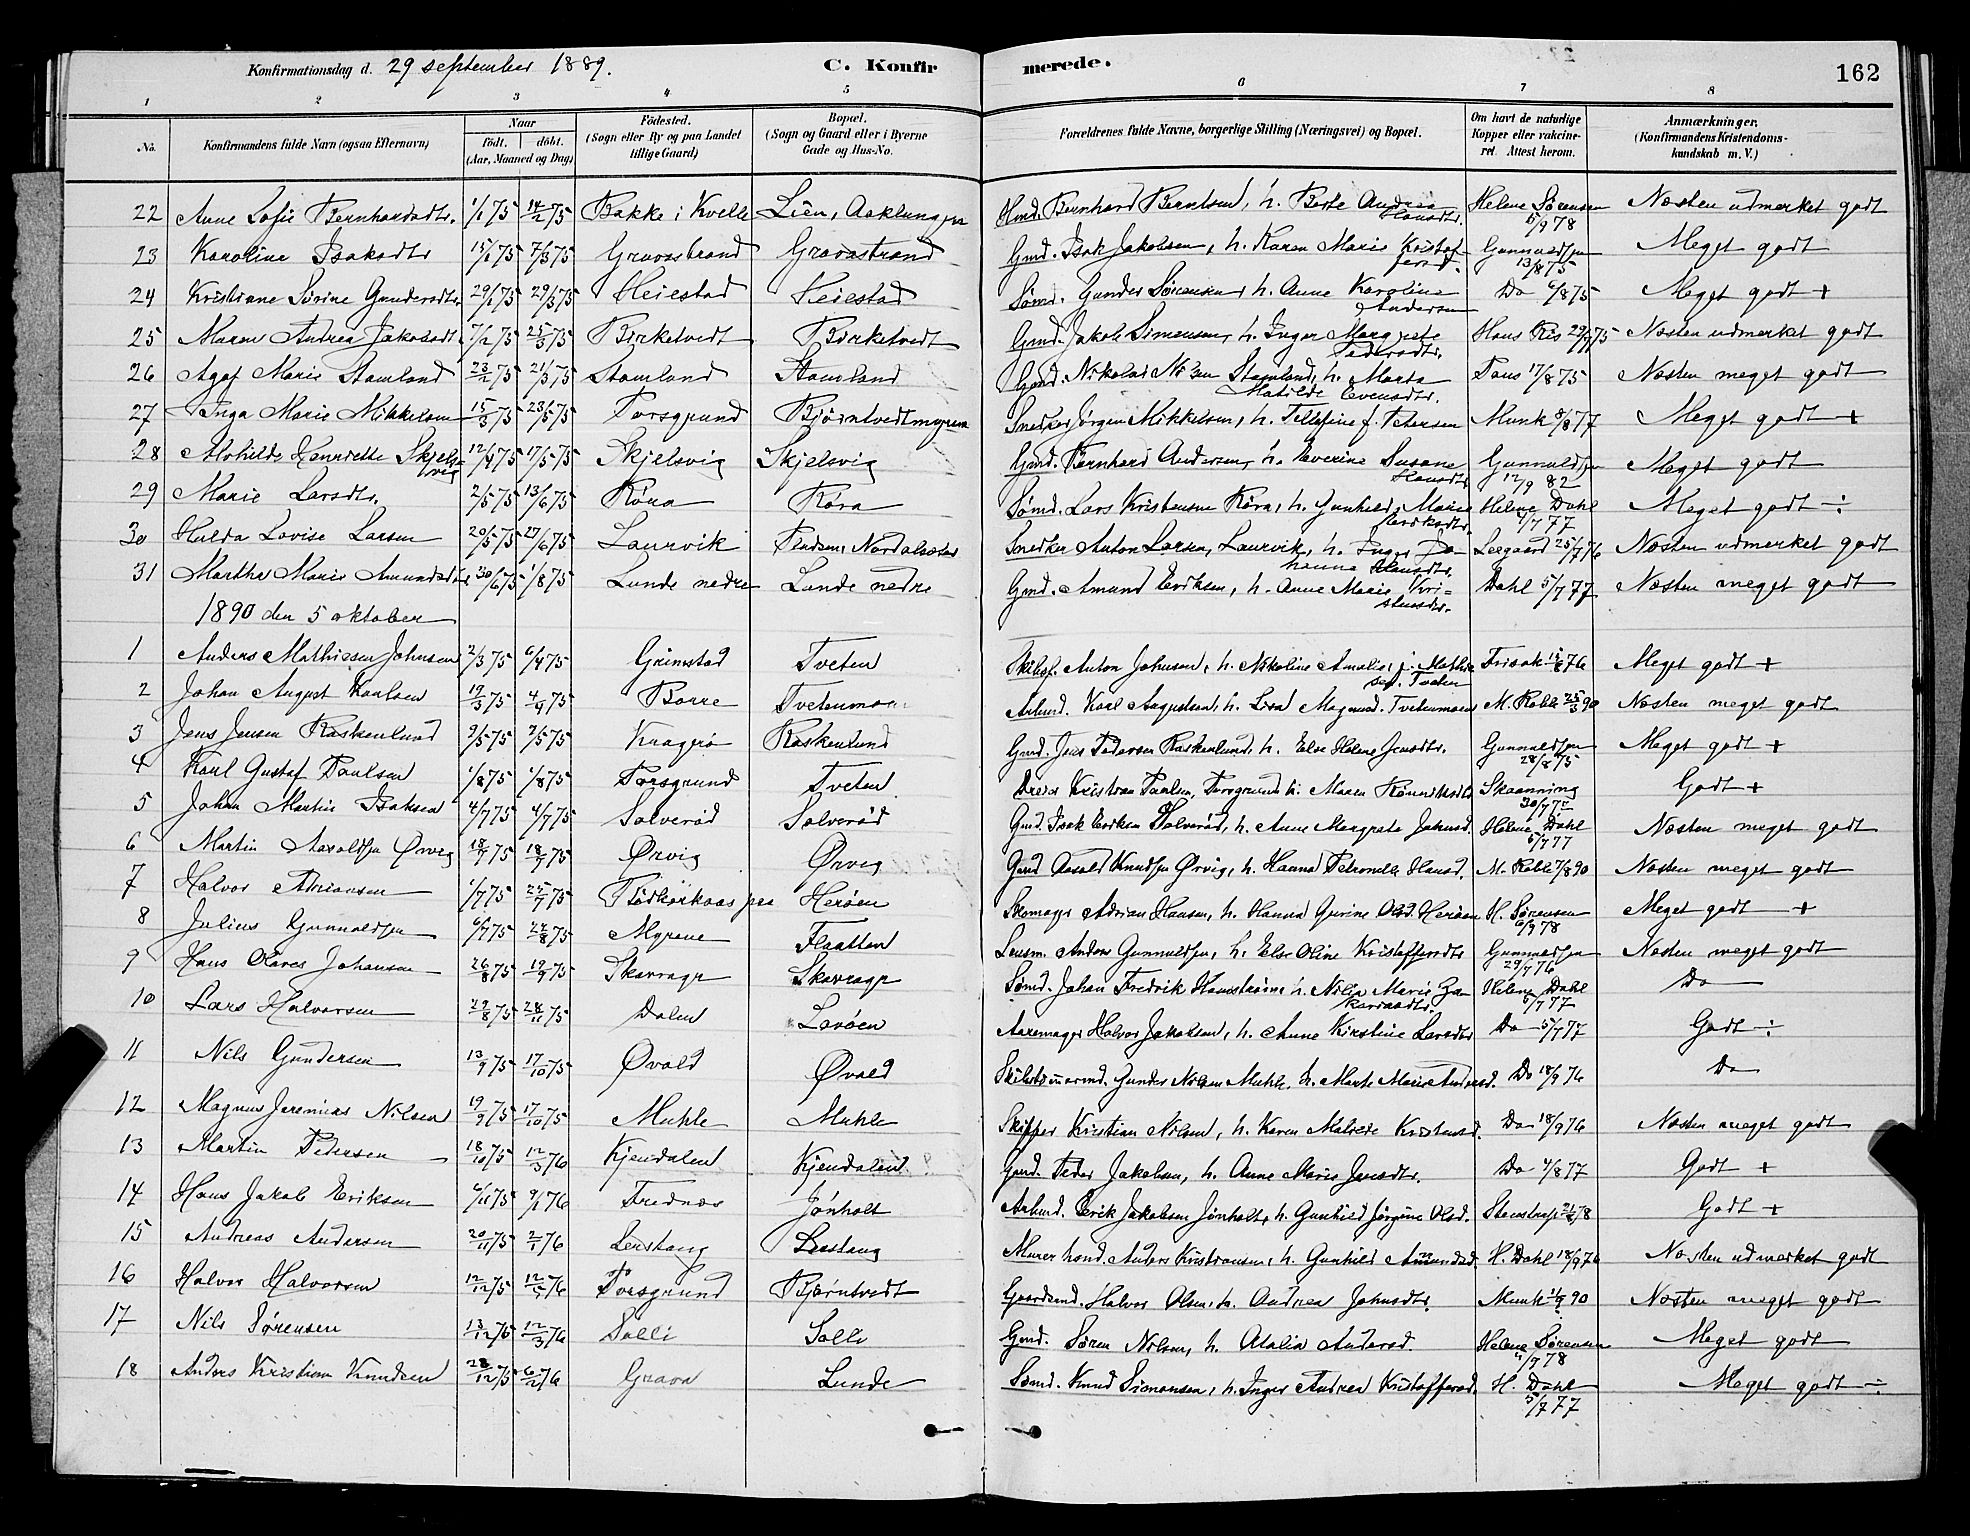 Konfirmationsdag d. 29 september 1889. C. Konfirmerede. 162
1 2 3 4 5 6 7 8
No. Konfirmandens fulde Navn (ogsaa Efternavn) Naar født. døbt. (Aar, Maaned og Dag) Fødested. (Sogn eller By og paa Landet tillige Gaard) Bopæl. (Sogn og Gaard eller i Byerne Gade og Hus-No. Forældrenes fulde Navne, borgerlige Stilling (Næringsvei) og Bopæl. Om havt de naturlige Kopper eller vakcineret. Attest herom. Anmærkninger. (Konfirmandens Kristendomskundskab m. V.)
22 Anne Sofie Bernhardsdtr. 1/1 75 14/2 75 Bakke i Kvelle Lien, Aaklungen Gmd. Bernhard Berntsen, h. Berte Andrea Hansdtr. Helene Sørensen 5/9 78 Næsten udmerket godt
23 Karoline Isaksdtr 15/1 75 7/3 75 Gravastrand Gravastrand Gmd. Isak Jakobsen, h. Karen Marie Kristofersd. Gunnuldsen 13/8 75 Meget godt
24 Kristiane Sørine Gundersdtr. 29/1 75 29/3 75 Heiestad Heiestad Sømd. Gunder Sørensen, h. Anne Karoline Andersen Do 6/8 75 Meget godt +
25 Maren Andrea Jakobsdt. 7/2 75 25/3 75 Birketvedt Birketvedt Gmd. Jakob Simonsen, h. Inger Margrete Pedersdtr. Hans Kis 29/7 75 Næsten udmerket godt
26 Agaf Marie Stamland 23/2 75 21/3 75 Stamland Stamland Gmd. Nikolai Stamland, h. Marta Matilde Evensdtr. 17/8 75 Næsten meget godt
27 Inga Marie Mikkelsen 15/3 75 23/5 75 Porsgrund Bjørntvedtmyren Snedker Jørgen Mikkelsen, h. Tellefine f. Petersen Munk 8/8 77 Meget godt +
28 Mathilde Henriette Skjelsvig 12/4 75 17/5 75 Skjelsvig Skjelsvig Gmd. Bernhard Andersen, h. Severine Susane Hansdtr Gunnuldsen 12/9 82 Meget godt
29 Marie Larsdtr. 2/5 75 13/6 75 Røra Røra Sømd. Lars Kristensen Røra, h. Gunhild Marie Helene Dahl 5/7 77 Meget godt ÷
30 Hulda Lovise Larsen 20/5 75 27/6 75 Laurvik Snedker Anton Larsen, Laurvik, h. Inger Johanna Hansdtr. Leegaard 25/7 76 Næsten udmerket godt
31 Martha Marie Amundsdtr 30/6 75 1/8 75 Lunde nedre Lunde nedre Gmd. Amund Eriksen, h. Anne Marie Kristensdtr. Dahl 5/7 77 Næsten meget godt
1890 den 5 oktober
1 Anders Mathiesen Johnsen 2/3 75 6/4 75 Grimstad Tveten Skibsf. Anton Johnsen, h. Nikoline Amalie f. Mathiesen. Tveten Frisak 15/8 76 Meget godt +
2 Johan August Karlsen 19/3 75 4/4 75 Borre Tvetenmoen Arbmd. Karl Augustsen, h. Lisa Magnusd. Tvetenmoen M. Roble 25/3 90 Næsten meget godt
3 Jens Jensen Raskenlund 9/5 75 7/5 75 Kragerø Raskenlund Gmd. Jens Pedersen Raskenlund, h. Else Helene Jensdtr. Gunnuldsen 28/8 75 Meget godt +
4 Karl Gustaf Paulsen 1/8 75 1/8 75 Porsgrund Tveten Dreier Kristian Paulsen, Porsgrund h. Maren Skaanning 30/7 Godt +
5 Johan Martin Isaksen 4/7 75 4/7 75 Solverød Solverød Gmd. Isak Eriksen Solverød, h. Anne Margrete Johnsd. Helene Dahl 5/7 77 Næsten meget godt
6 Martin Aasoldsen Ørvig 18/7 75 18/7 75 Ørvig Ørvig Gmd Aasold Knudsen Ørvig, h. Hanna Petronelle Hansd. M. Roble 7/8 90 Næsten meget godt
7 Halvor Adriansen 1/7 75 25/7 75 Herøen Skomager Adrian Hansen, h. Hanna Gurine Olsd. Herøen H. Sørensen 6/9 78 Meget godt +
8 Julius Gunnuldsen 6/7 75 22/8 75 Myrene Flaatten Lensm. Anders Gunnuldsen, h. Else Oline Kristoffersdtr Gunnuldsen 29/7 76 Næsten meget godt
9 Hans Olaves Johansen 26/8 75 19/9 75 Skavrager Skavrager Sømd. Johan Fredrik h. Nilia Marie Zakariasdtr. Helene Dahl 5/7 77 Do
10 Lars Halvorsen 29/8 75 28/11 75 Dalen Lavøen Aaremager Halvor Jakobsen, h. Anne Kirstine Larsdtr Do 5/7 77 Godt ÷
11 Nils Gundersen 13/9 75 17/10 75 Øvald Øvald Skibstømrmd. Gunder Nilsen Muhle h. Marte Marie Andersd. Do 18/9 76 Do
12 Magnus Jeremias Nilsen 19/9 75 17/10 75 Muhle Muhle Skipper Kristian Nilsen, h. Karen Malvide Kristensd. Do 18/9 76 Næsten meget godt
13 Martin Petersen 18/10 75 12/3 76 Kjendalen Kjendalen Gmd. Peder Jakobsen, h. Anne Marie Jensdtr. Do 4/8 77 Godt +
14 Hans Jakob Eriksen 6/11 75 9/1 76 Frednes Jønholt Arbmd. Erik Jakobsen Jønholt, h. Gunhild Jørgine Olsd. Stenstrup 21/8 78 Godt +
15 Andreas Andersen 20/11 75 2/1 76 Leerstang Leerstang Murer hand. Anders Kristiansen, h. Gunhild Amundsd. H. Dahl 18/9 76 Næsten udmerket godt
16 Halvor Halvorsen 12/12 75 12/3 76 Porsgrund Bjørntvedt Gaardsmd. Halvor Olsen, h. Andrea Johnsdtr. Munk 1/9 90 Næsten meget godt
17 Nils Sørensen 13/12 75 12/3 76 Solli Solli Gmd. Søren Nilsen, h. Atalia Andersd. Helene Sørensen 4/7 78 Meget godt
18 Anders Kristian Knudsen 28/12 75 6/2 76 Grava Lunde Sømd. Knud Simonsen, h. Inger Andrea Kristoffersd. H. Dahl 5/7 77 Meget godt ÷